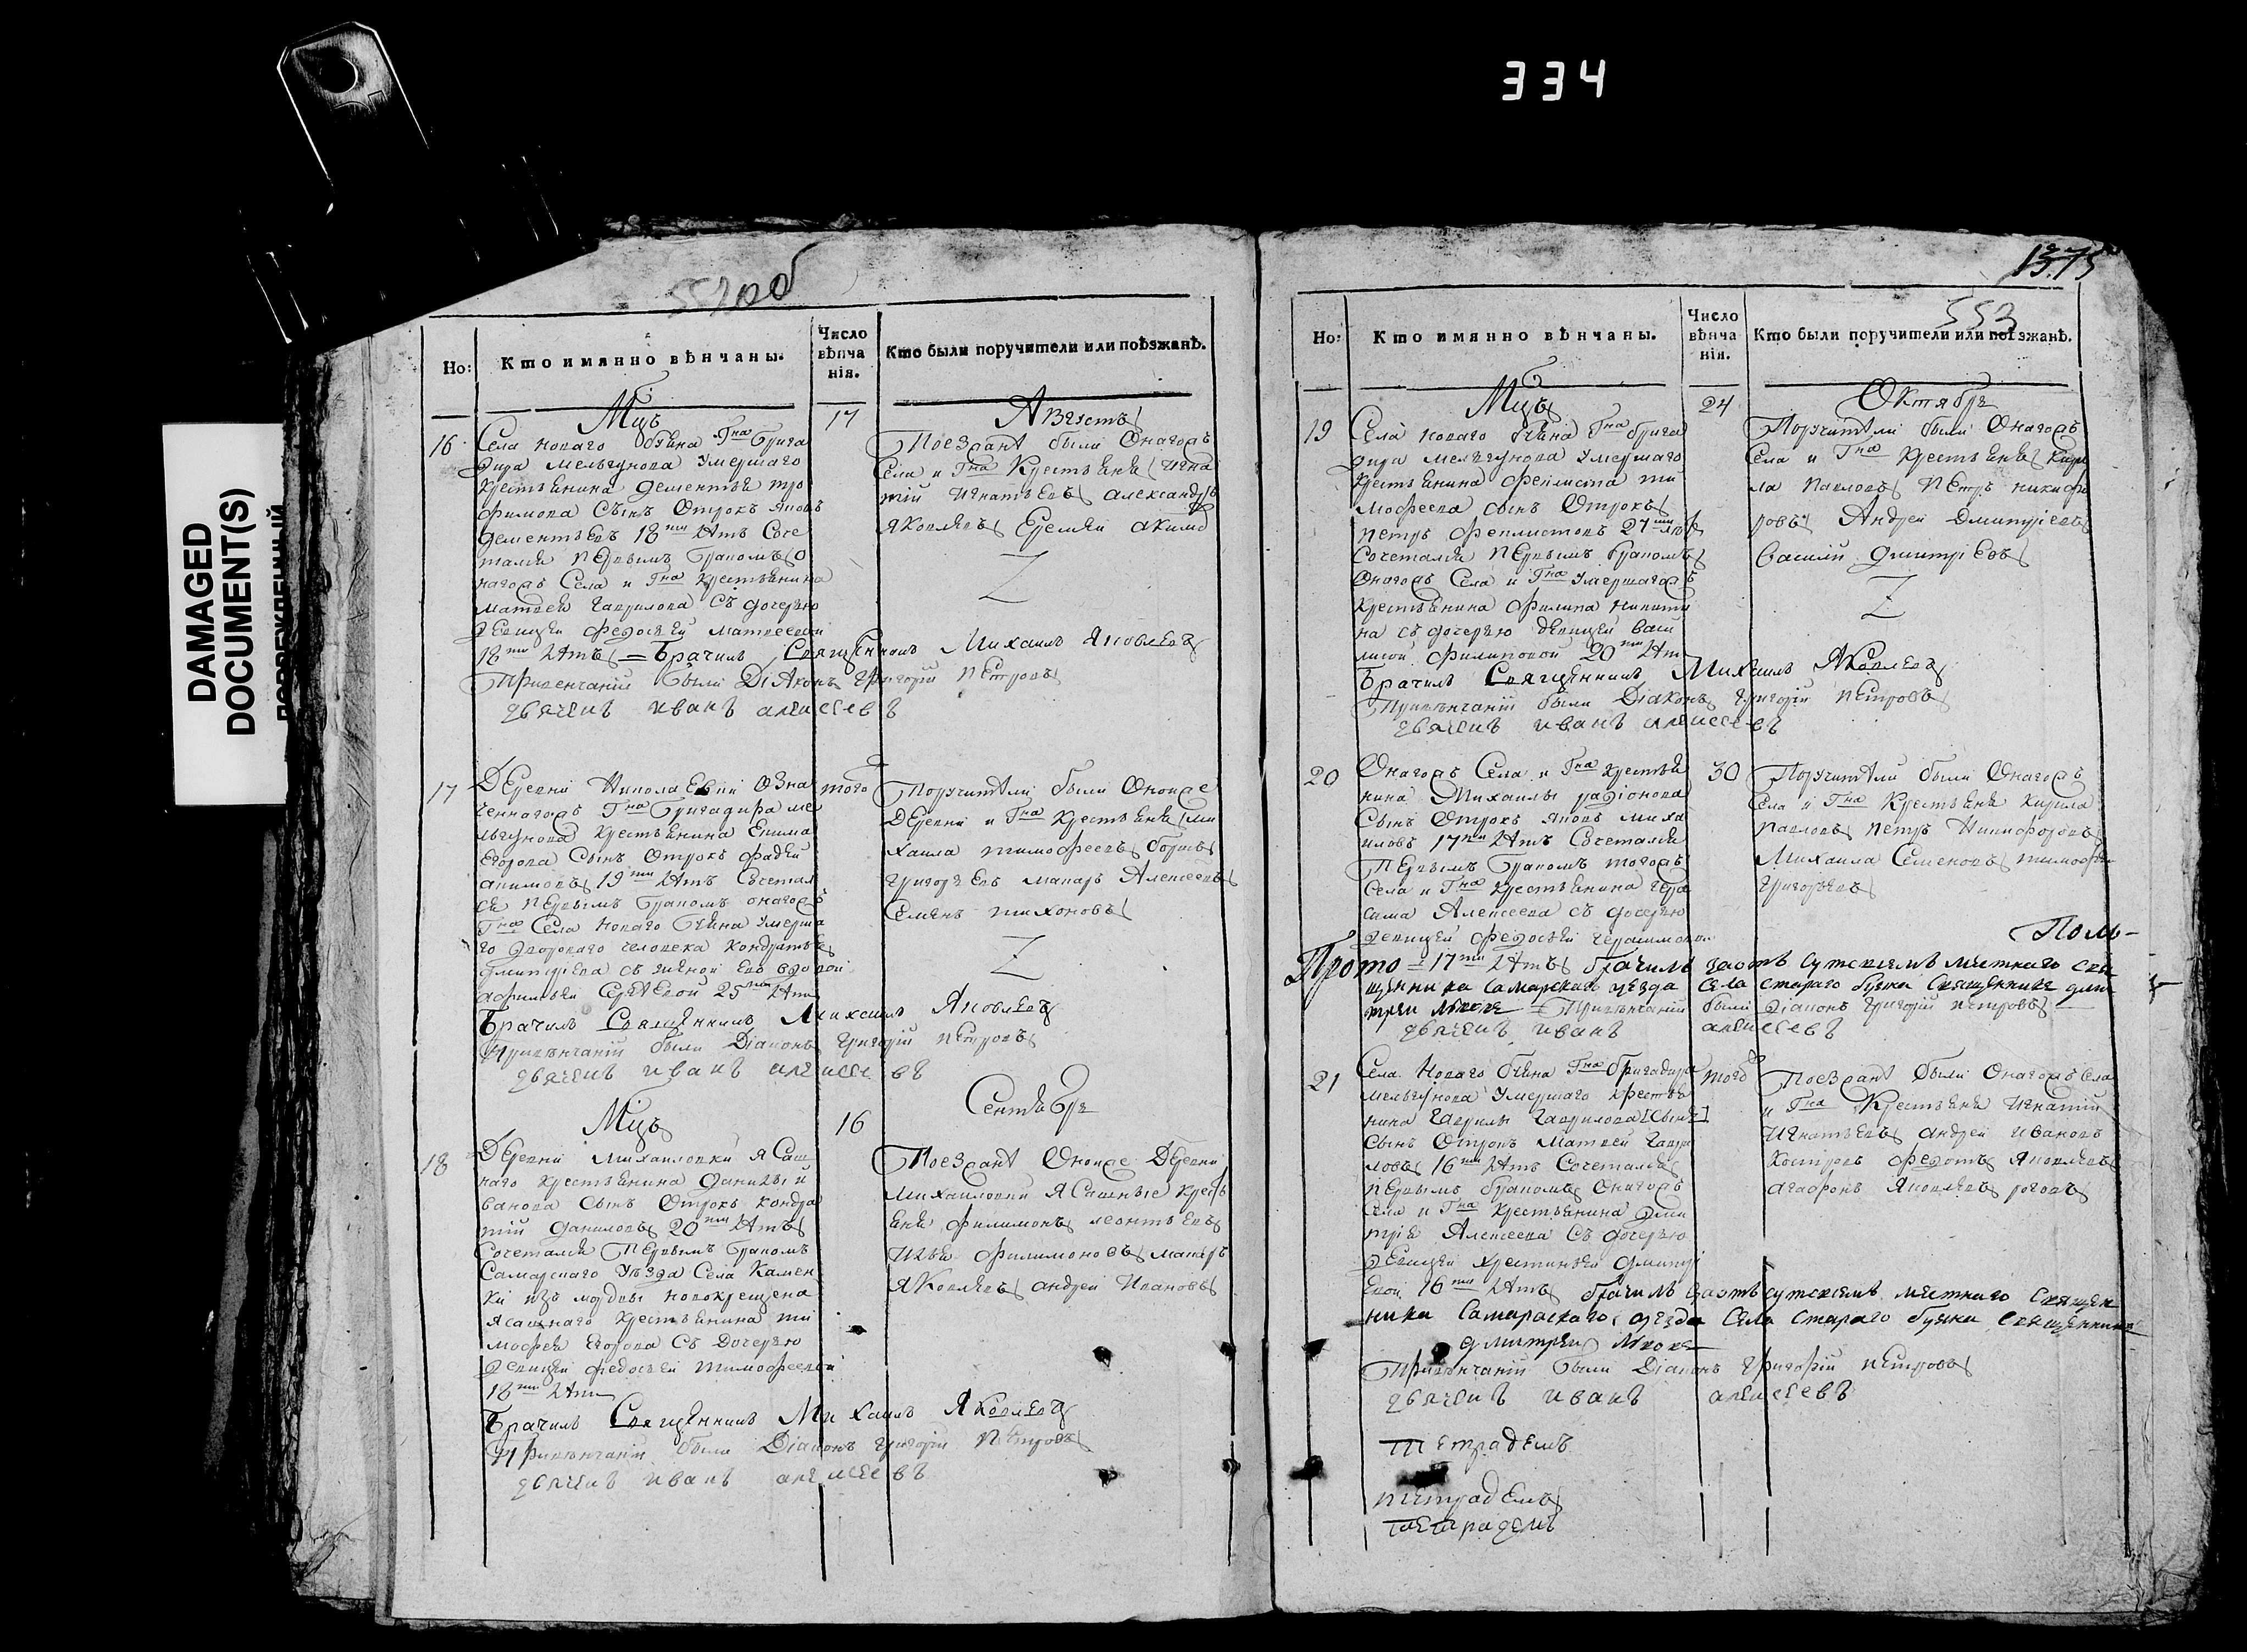 334
DAMAGED
DOCUMENT(S)
552 об
553
Но:
Кто имянно вѣнчаны.
Число
вѣнча
нія.
Кто были поручители или поѣзжанѣ.
Мцъ
17
Августъ
16
Села новаго буяна Гна брига
дира мельгунова умершаго
крестьянина дементья тро
фимова сынъ отрокъ яковъ
дементьевъ 18ти лѣтъ соче
тался первымъ бракомъ о
нагожъ села и Гна крестьянина
матвея гаврилова съ дочерью
девицей федосьей матвеевой
18ти лѣтъ = Брачилъ Священникъ Михаилъ Яковлевъ
Привенчаніи были Діяконъ григорій петровъ
дьячекъ иванъ алексеевъ
Поезжанѣ были онагожъ
села и Гна крестьяне игна
тій игнатьевъ александръ
яковлевъ еремеи акимо
17
того
Деревни Николаевки озна
ченнагожъ Гна бригадира ме
льгунова крестьянина екима
егорова сынъ отрокъ фадей
акимовъ 19ти лѣтъ сочетал
ся первымъ бракомъ онагожъ
Гна села новаго буяна умерша
го двороваго человека кондратья
дмитриева съ женой его вдовой
афимьей сергѣевой 25ти лѣтъ
Брачилъ Священникъ Михаилъ Яковлевъ
Привѣнчаніи были Діаконъ григорій петровъ
дьячекъ иванъ алексеевъ
Поручители были оной же
деревни и Гна крестьяне ми
хаила тимофеевъ борисъ
григорьевъ макаръ алексеевъ
семенъ тихоновъ
Мцъ
16
Сентябрь
18
Деревни михаиловки ясаш
наго крестьянина данилы и
ванова сынъ отрокъ кондра
тій даниловъ 20ти лѣтъ
сочетался первымъ бракомъ
Самарскаго уѣзда села камен
ки изъ мордвы новокрещена
ясашнаго крестьянина ти
мофея егорова съ дочерью
девицей федосьей тимофеевой
18ти лѣтъ
Брачилъ Священникъ Михаилъ Яковлевъ
Привѣнчаніи были Діаконъ григорій петровъ
дьячекъ иванъ алексеевъ
Поезжанѣ оной же деревни
михаиловки ясашные кресть
яне филимонъ леонтьевъ
илья филимоновъ макаръ
яковлевъ андрей ивановъ
Но:
Кто имянно вѣнчаны.
Число
вѣнча
нія.
Кто были поручители или поѣзжанѣ.
Мцъ
24
Октябрь
19
Села новаго буяна Гна брига
дира мельгунова умершаго
крестьянина феклиста ти
мофеева сынъ отрокъ
петръ феклистовъ 27ми лѣтъ
сочетался первымъ бракомъ
онагожъ села и Гна умершагожъ
крестьянина филипа никити
на съ дочерью девицей васи
лисой филиповой 20ти лѣтъ
Брачилъ Священникъ Михаилъ Яковлевъ
Привѣнчаніи были Діаконъ григорій петровъ
дьячекъ иванъ алексеевъ
Поручители были онагожъ
села и Гна крестьяне кири
ла павловъ петръ никифо
ровъ андрей дмитріевъ
василій дмитріевъ
20
30
Онагожъ села и Гна крестья
нина михаилы радіонова
сынъ отрокъ яковъ миха
иловъ 17ти лѣтъ сочетался
первымъ бракомъ тогожъ
села и Гна крестьянина гера
сима алексеева съ дочерью
девицей федосьей герасимовой
17ти лѣтъ брачилъ заотъсутсвіемъ мѣстнаго свя
щенника самарскаго уезда села стараго буяна священникъ дми
трей
Привѣнчаніи были діаконъ григорій петровъ
дьячекъ иванъ алексеевъ
Поручители были онагожъ
села и Гна крестьяне кирила
павловъ петръ никифоровъ
михаила семеновъ тимофеи
григорьевъ
Прото =
Поль-
21
того
Села новаго буяна Гна бригадира
мельгунова умершаго крестья
нина гаврилы гаврилова [сынъ]
сынъ отрокъ матвей гаври
ловъ 16ти лѣтъ сочетался
первымъ бракомъ онагожъ
села и Гна крестьянина дми
трія алексеева съ дочерью
девицей хрестиньей дмитрі
евой 16ти лѣтъ брачилъ заотъсутсвіемъ мѣстнаго священ
ника самарскаго уезда села стараго буяна священникъ
дмитрей
Привѣнчаніи были Діаконъ григорій петровъ
дьячекъ иванъ алексеевъ
Поезжанѣ были онагожъ села
и Гна крестьяне игнатій
игнатьевъ андрей ивановъ
костровъ федотъ яковлевъ
агафонъ яковлевъ роговъ